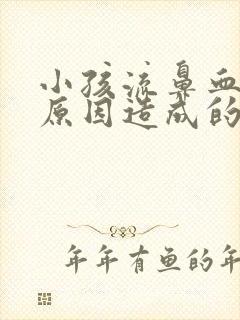 小孩流鼻血
原因造成的
年年有鱼的年